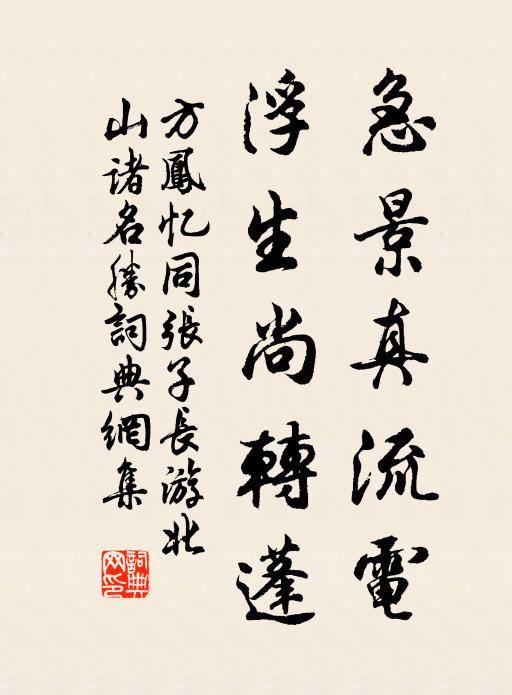 急景真流電
浮生尚轉蓬
方鳳忆同張子長游北
山诸名勝詞典網集
詞典
网印